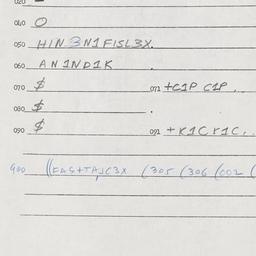 020
040 O
050 HIN3N1FISL3X.
060 AN1ND1K
070 $ 071 +C1P C1P..
080 $ .
090 $ 091 +K1C K1C..
900 ((FAS+TAJC3X (305 (306 (002 (